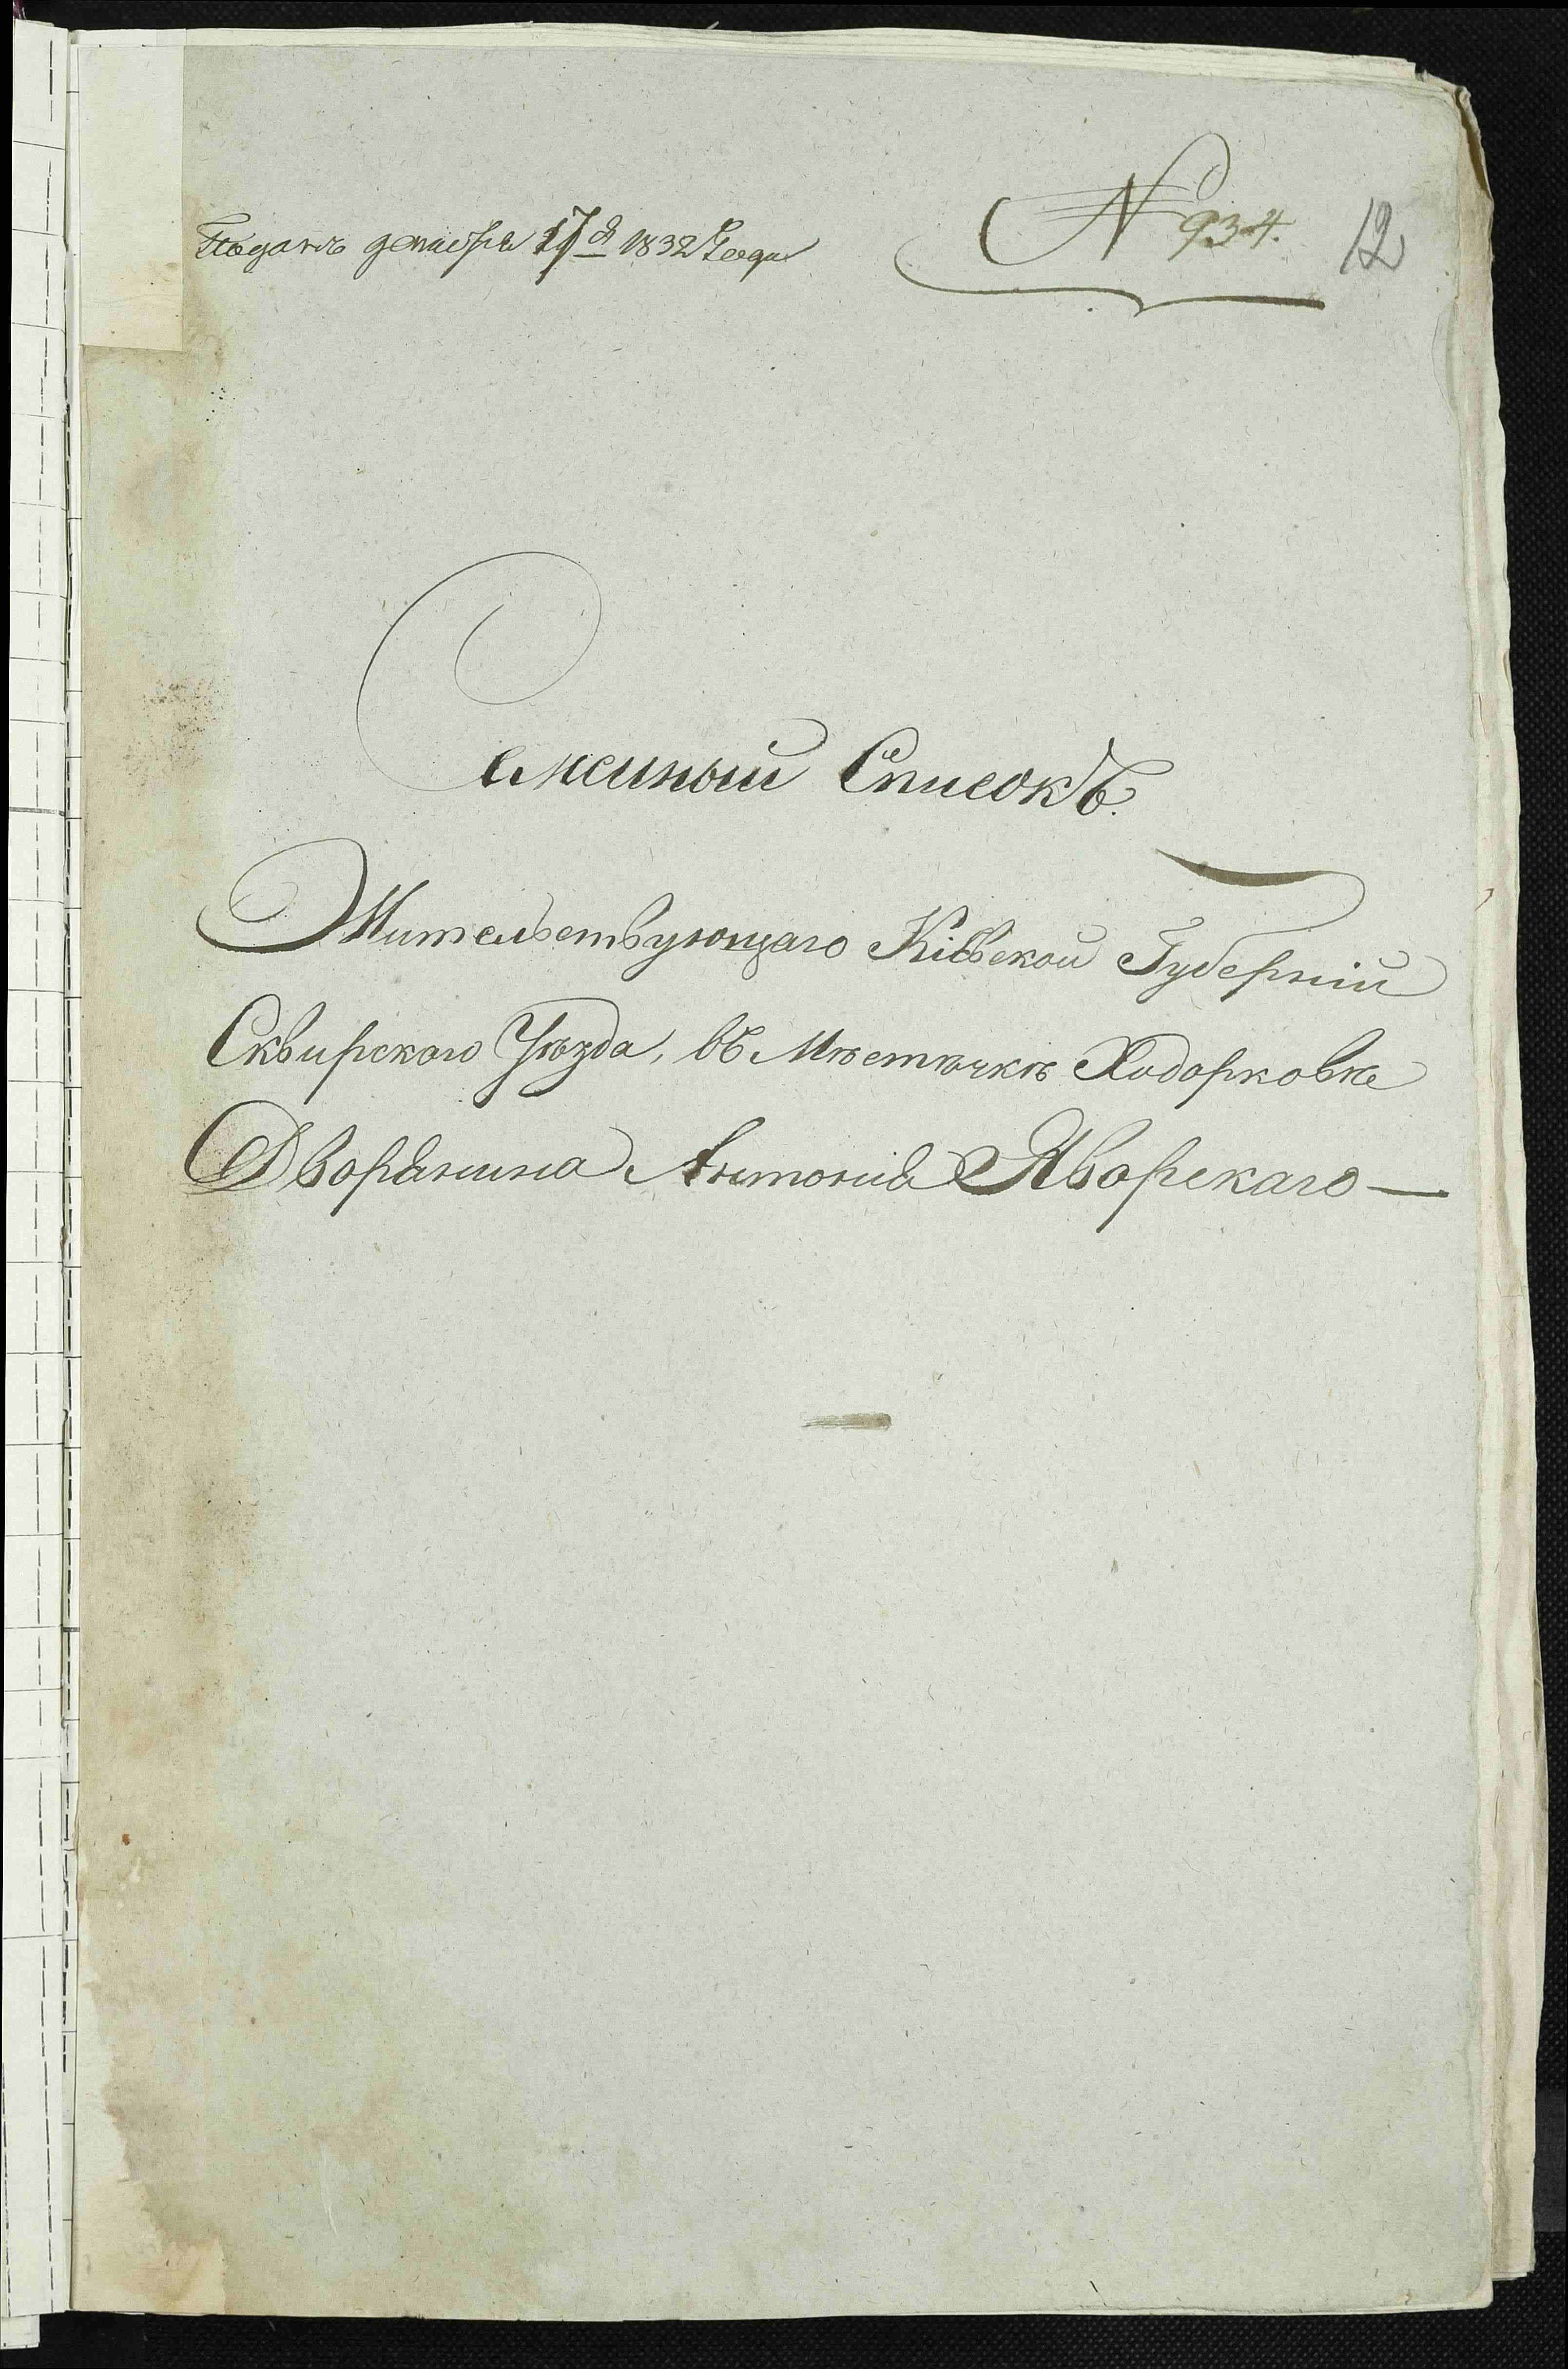 Поданъ декабря 17 д 1832 Года
N 934. 12
Семейный Списокъ.
Жительствующаго Кіевской Губерніи
Сквирскаго Уѣзда, въ Мѣстѣчкѣ Ходорковѣ
Дворянина Антонія Яворскаго —